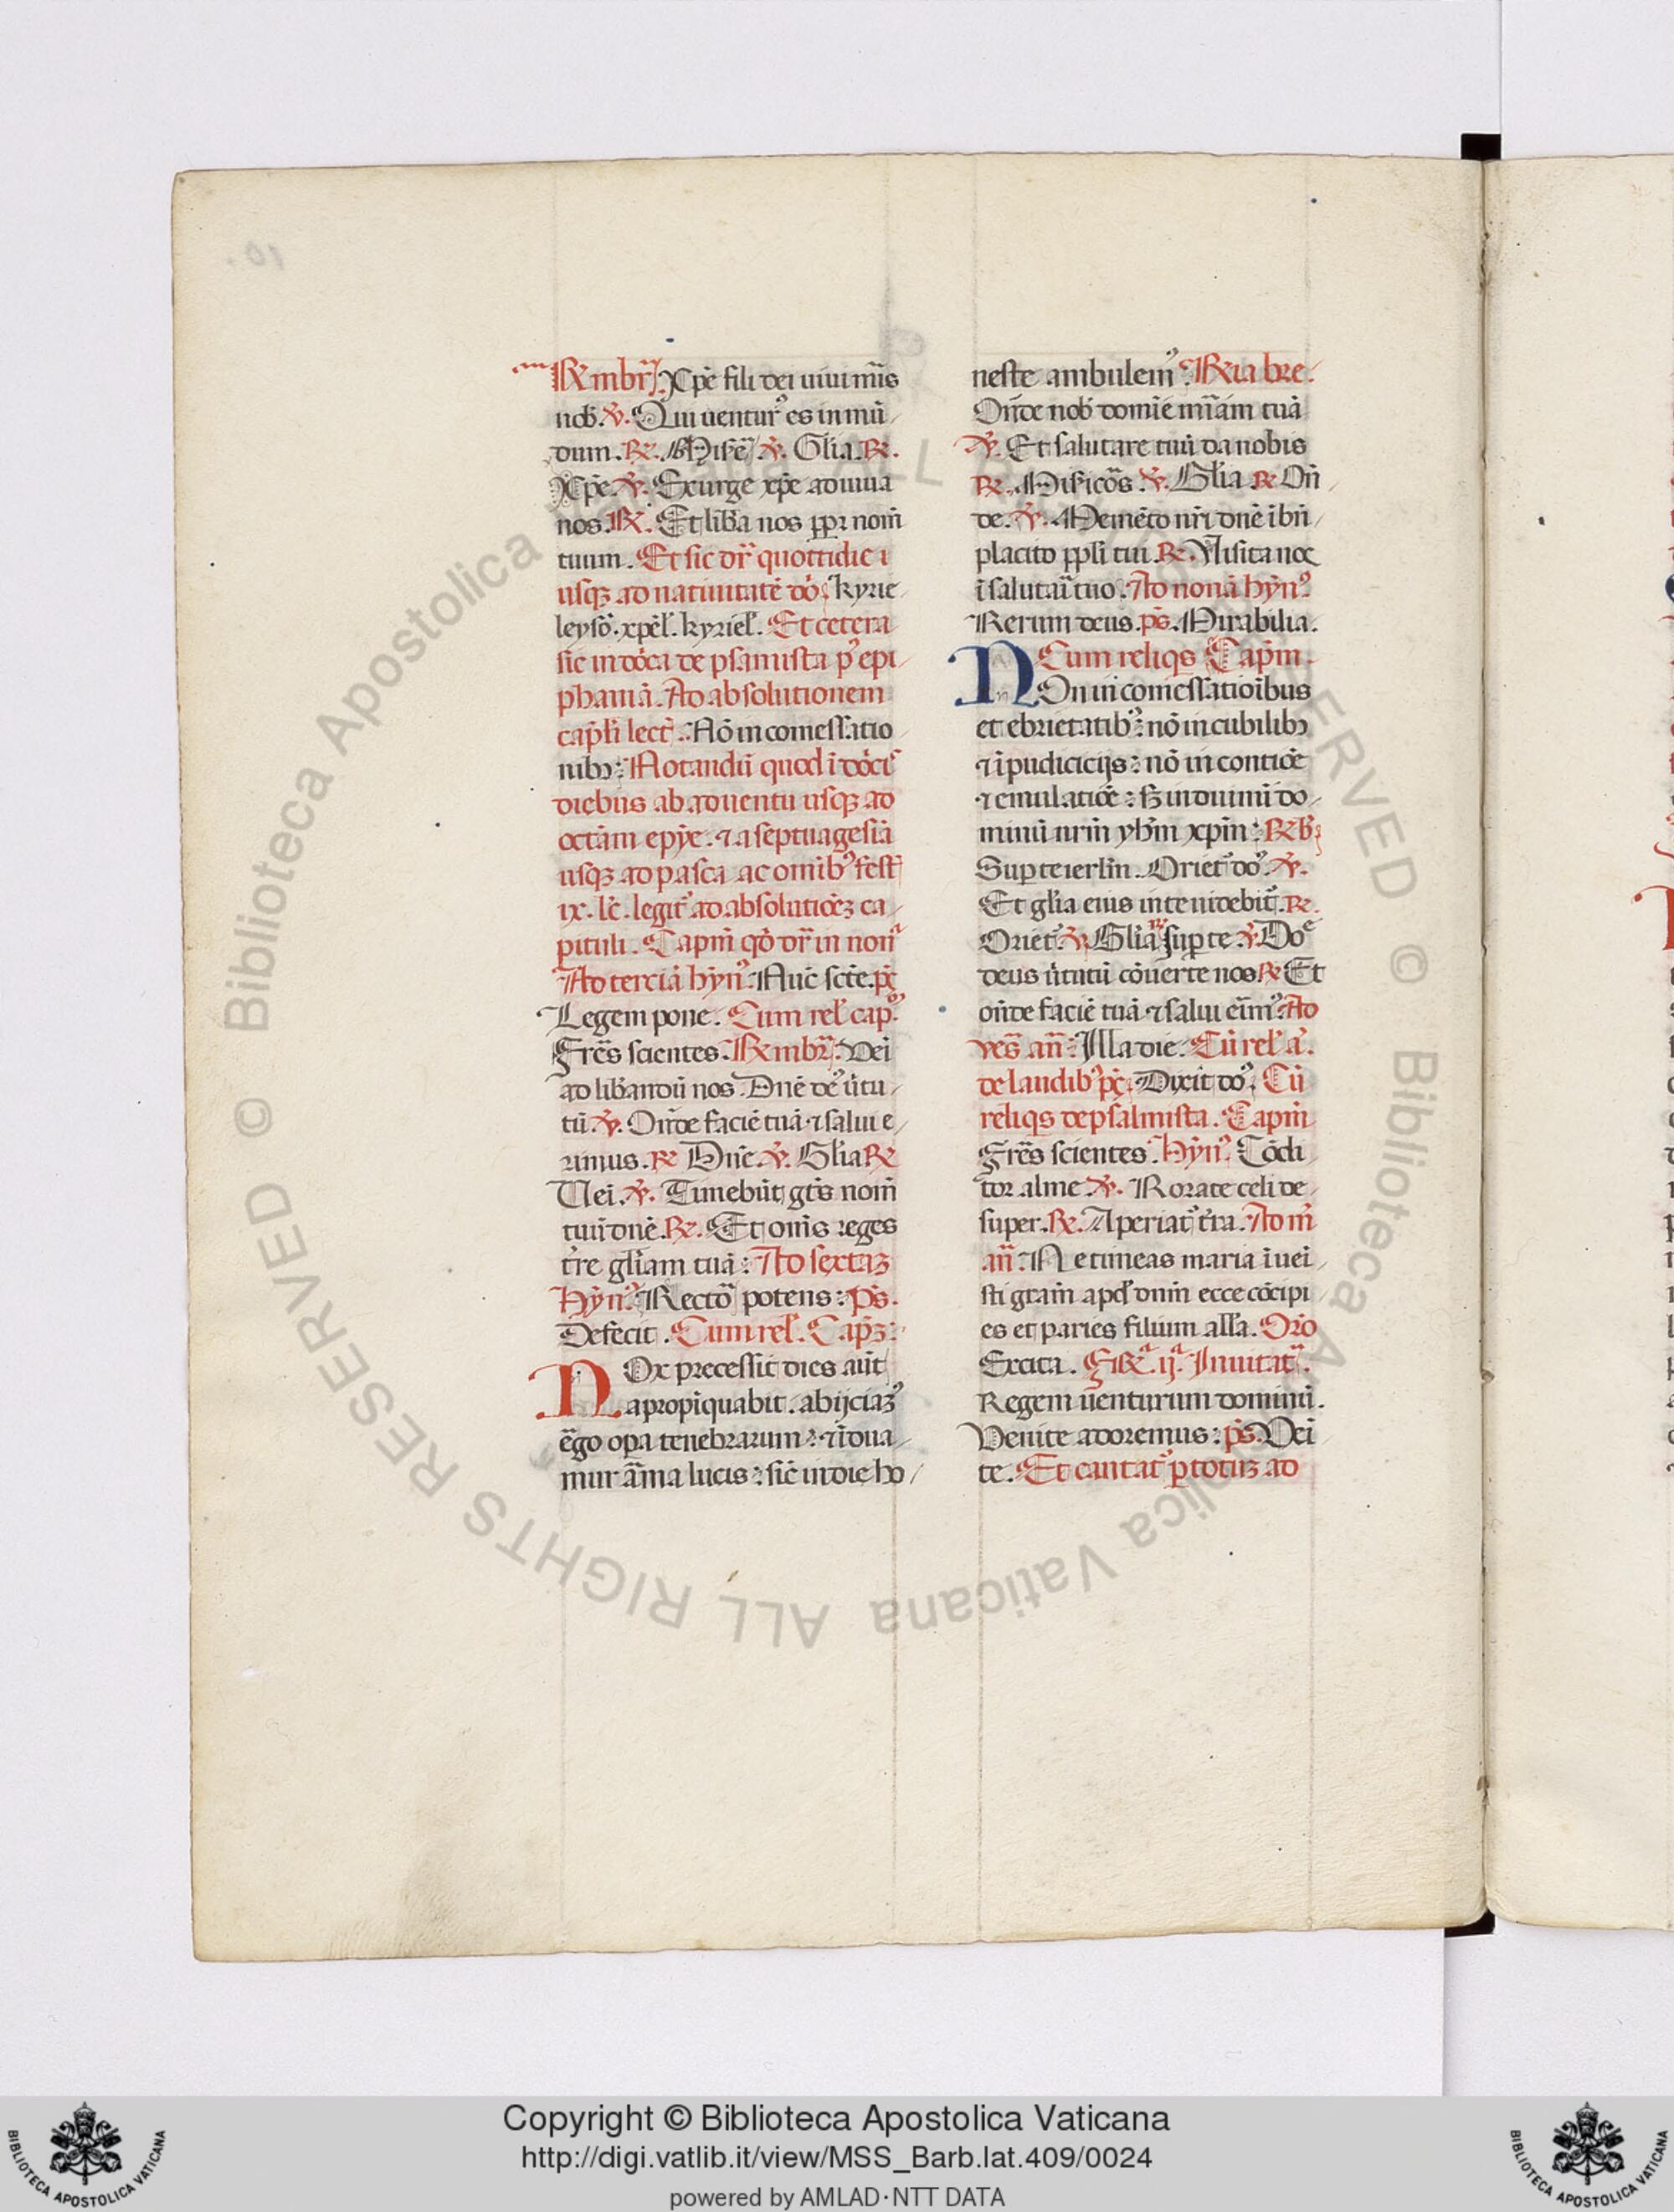 R͞e mbr̄. Xp̄e fili dei uiui mīs
nob̄. ℣. Qui uentur⁹ es in mū
dum. ℟. Mise͞. ℣. Gl̄ia. ℟.
Xp̄e. ℣. Exurge xp̄e adiuua
nos. ℟. Et lib̄a nos ꝓpꝛ nom̄
tuum. Et sic dr̄ quottidie i
usqꝫ ad natiuitatē dō. kyrie
leysō. xp̄el̄. kyriel̄. Et cetera
sic in dōca de psamista p⁹ epi
phaniā. Ad absolutionem
cap̄li lect̄. Nō in comessatio
nibꝫ: Notandū quod ī dōcis
diebus ab aduentu usqꝫ ad
octām epȳe. ⁊ a septuagesīa
usqꝫ ad pasca ac omībꝰ fest̄
ix. lc̄. legit̄ ad absolutiōeꝫ ca
pituli. Capm̄ qd̄ dr̄ in non̄ᵃ
Ad terciā hȳn⁹. Nūc scē. pṣ̄
Legem pone. Cum rel̄ cap̄.
Fr̄es scientes. ℟ mbr̄. Vei
ad lib̄andū nos. Dn̄e de⁹ u̇tu
tū. ℣. On̄de faciē tuā ⁊ salui e
rimus. ℟ Dn̄e. ℣. Gl̄ia ℟
Uei. ℣. Timebūt gt̄s nom̄
tuū dn̄e. ℟. Et om̄s reges
tr̄e gl̄iam tuā: Ad sextaꝫ
Hȳn⁹. Rectoᷓ potens: Ps̄.
Defecit. Cum rel̄. Cap̄ꝫ:
NOx precessit dies aūt
apropīquabit. abijciaꝫ⁹
ēgo opa tenebrarum: ⁊ īdua
mur āma lucis: sic̄ in die ho
neste ambulem⁹. ℟ia bre.
On̄de nob̄ domīe mīam tuā
℣. Et salutare tuū da nobis
℟. Miſicōs. ℣. Gl̄ia ℟ On̄
de. ℣. Memēto nr̄i dn̄e ī bn̄
placito ppl̄i tui. ℟. Uisita noc
ī salutaī tuo. Ad nonā hȳn⁹.
Rerum deus. ps̄. Mirabilia.
Cum reliqs Cap̄m.
NOn in comessatioībus
et ebrietatib⁹: nō in cubilibꝫ
⁊ īpudicicijs: nō in contiōe
⁊ emulatiōe: sꝫ induimī do
minū nrm̄ yh̄m xp̄m: ℟ bꝫ
Sup te ierl̄m. Oriet̄ dō⁹. ℣.
Et gl̄ia eius in te uidebit̄. ℟.
Oriet̄. ℣. Gl̄ia ℟ sup te. ℣. Doᵉ
deus u̇tutū cōuerte nos. ℟ Et
on̄de faciē tuā ⁊ salui eīm⁹. Ad
ves̄ an̄. Illa die. Cū rel̄ a⁹.
de laudib⁹ pṣ̄. Dixit dō⁹. Cū
reliqs de psalmista. Capm̄
Fr̄es scientes. Hȳn⁹. Cōdi
tor alme. ℣. Rorate celi de
super. ℟. Aperiat̄ tr̄a. Ad m̄
an̄. Ne timeas maria īuei
sti gram̄ apd̄ dnm̄ ecce cōcipi
es et paries filium all̄a. Or̄o
Excita. F℟ᵃ ijᵃ. Inuitat̄.
Regem ūenturum dominū.
Venite adoremus: ps̄. Vei
te. Et cantat̄ p totuꝫ ad
Copyright © Biblioteca Apostolica Vaticana
http://digi.vatlib.it/view/MSS_Barb.lat.409/0024
powered by AMLAD·NTT DATA
© Biblioteca Apostolica Vaticana ALL RIGHTS RESERVED
BIBLIOTECA APOSTOLICA VATICANA
BIBLIOTECA APOSTOLICA VATICANA